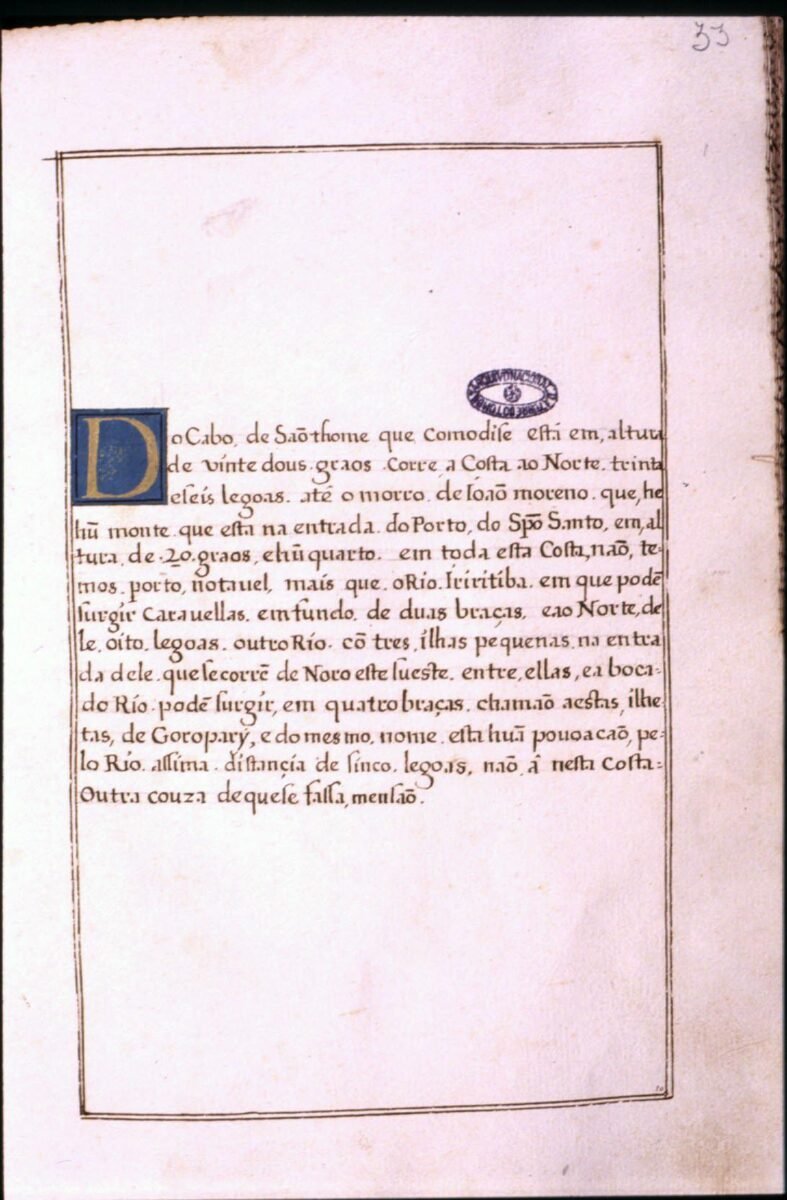 33
ARQUIVO NACIONAL DA TORRE DO TOMBO
Do Cabo, de Saõ thome que comodise está em, altura
de vinte dous graos. Corre a Costa ao Norte. trinta
e seis legoas. até o morro. de Ioaõ moreno. que, he
hũ monte que esta na entrada. do Porto, do Spõ Santo, em, al
tura, de .20. graos, e hũ quarto. em toda esta Costa, naõ, te-
mos. porto, notavel, mais que. o Rio. Iriritiba. em que podẽ
surgir Caravellas. em fundo. de duas braças. e ao Norte, de
le, oito, legoas. outro Rio. cõ tres, ilhas pequenas. na entra
da dele. que se corrẽ de Noro este sueste. entre, ellas, e a boca-
do Rio. podẽ surgir, em quatro braças. chamaõ a estas, ilhe-
tas, de Goropary, e do mesmo. nome. esta huã povoacaõ, pe-
lo Rio. assima. distançia de sinco. legoas, naõ á nesta Costa-
Outra couza de que se fassa, mensaõ.